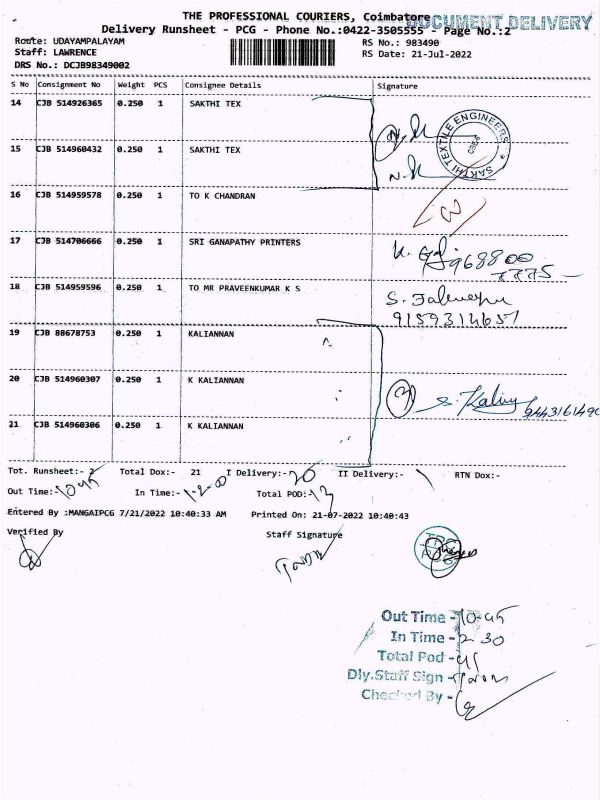 THE PROFESSIONAL COURIERS, Coimbatore
DOCUMENT DELIVERY
Delivery Runsheet - PCG - Phone No.:0422-3505555 - Page No.:2
Route: UDAYAMPALAYAM RS No.: 983490
Staff: LAWRENCE RS Date: 21-Jul-2022
DRS No.: DCJB98349002
S No Consignment No Weight PCS Consignee Details Signature
14 CJB 514926365 0.250 1 SAKTHI TEX
SAKTHI TEXTILE ENGINEERS
15 CJB 514960432 0.250 1 SAKTHI TEX
16 CJB 514959578 0.250 1 TO K CHANDRAN
17 CJB 514706666 0.250 1 SRI GANAPATHY PRINTERS
968800
7775
18 CJB 514959596 0.250 1 TO MR PRAVEENKUMAR K S
9159314657
19 CJB 88678753 0.250 1 KALIANNAN
20 CJB 514960307 0.250 1 K KALIANNAN
3 9443161490
21 CJB 514960306 0.250 1 K KALIANNAN
Tot. Runsheet:- 2 Total Dox:- 21 I Delivery:- 20 II Delivery:- RTN Dox:-
Out Time:- 10-45 In Time:- Total POD:-
Entered By :MANGAIPCG 7/21/2022 10:40:33 AM Printed On: 21-07-2022 10:40:43
Verified By Staff Signature
Out Time - 10-45
In Time - 2 30
Total Pod -
Dly.Staff Sign -
Checked By -